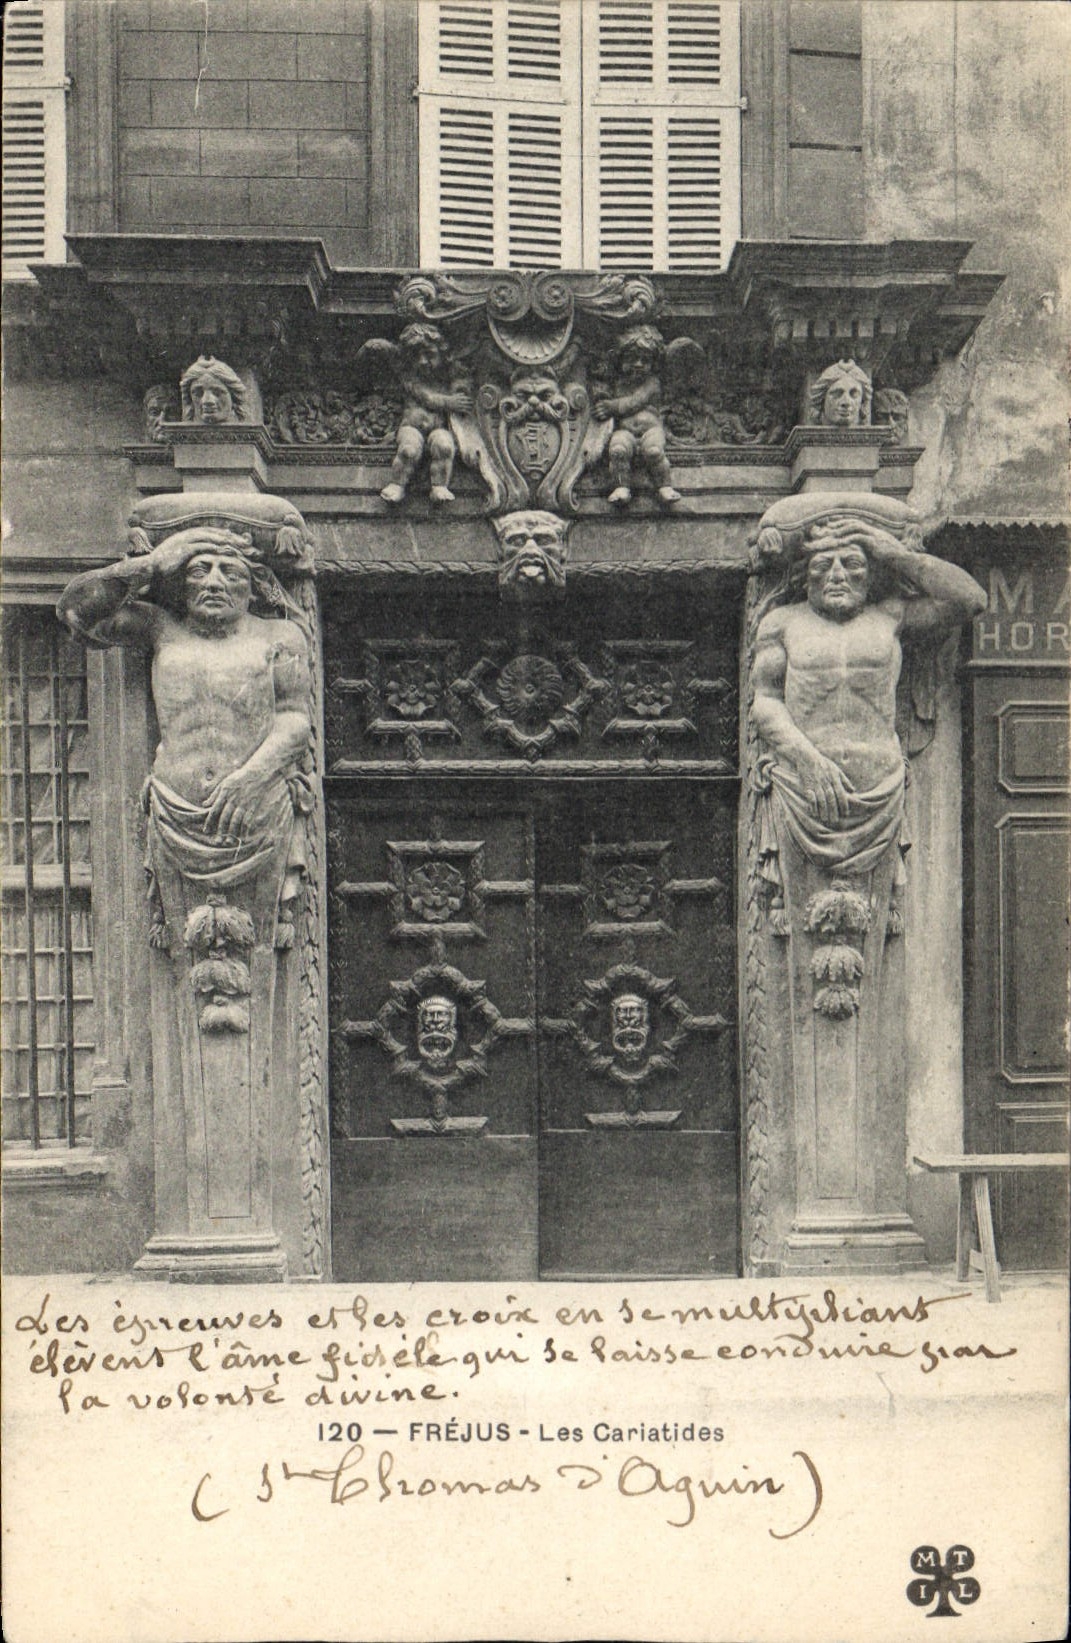 MA
HOR
Les épreuves et les croix en se multipliant
élèvent l'âme fidèle qui se laisse conduire par
la volonté divine.
120 — FRÉJUS - Les Cariatides
( St Thomas d'Aquin )
M T
I L